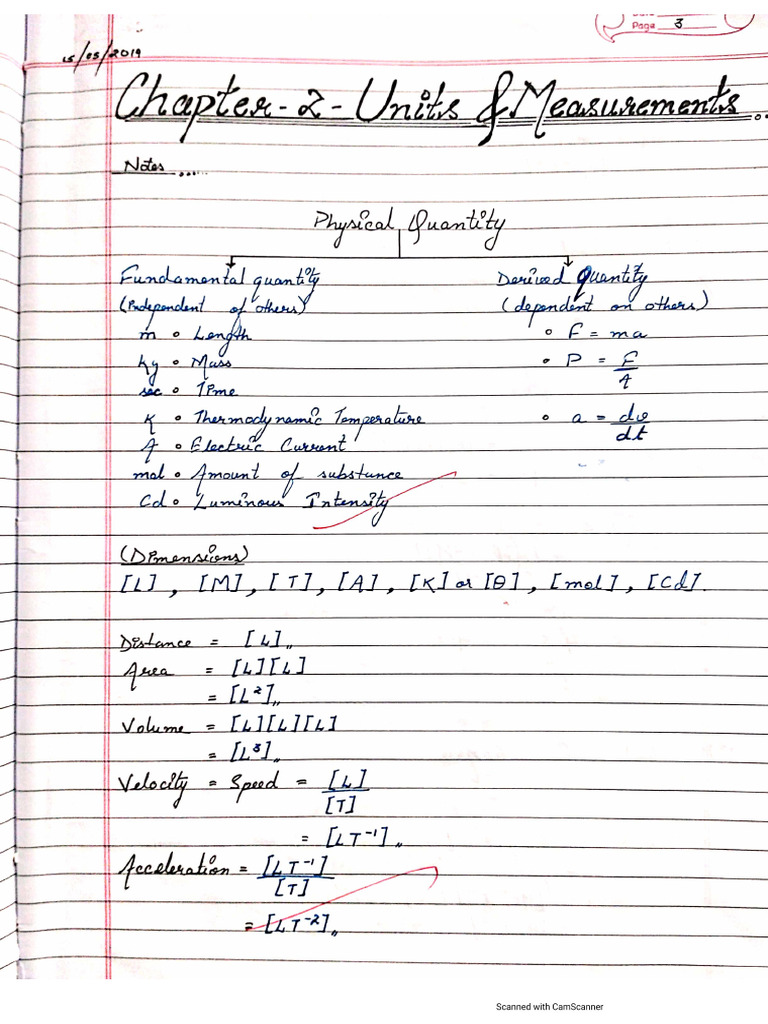 Page 3
15/05/2019
Chapter-2-Units & Measurements...
Notes .....
Physical Quantity
Fundamental quantity
(Independent of others)
m • Length
kg • Mass
sec • Time
K • Thermodynamic Temperature
A • Electric Current
mol • Amount of substance
Cd • Luminous Intensity
Derived Quantity
(dependent on others)
• F = ma
• P = F/A
• a = dv/dt
(Dimensions)
[L], [M], [T], [A], [K] or [θ], [mol], [Cd].
Distance = [L],,
Area = [L][L]
= [L²],,
Volume = [L][L][L]
= [L³],,
Velocity = Speed = [L]/[T]
= [LT⁻¹],,
Acceleration = [LT⁻¹]/[T]
= [LT⁻²],,
Scanned with CamScanner